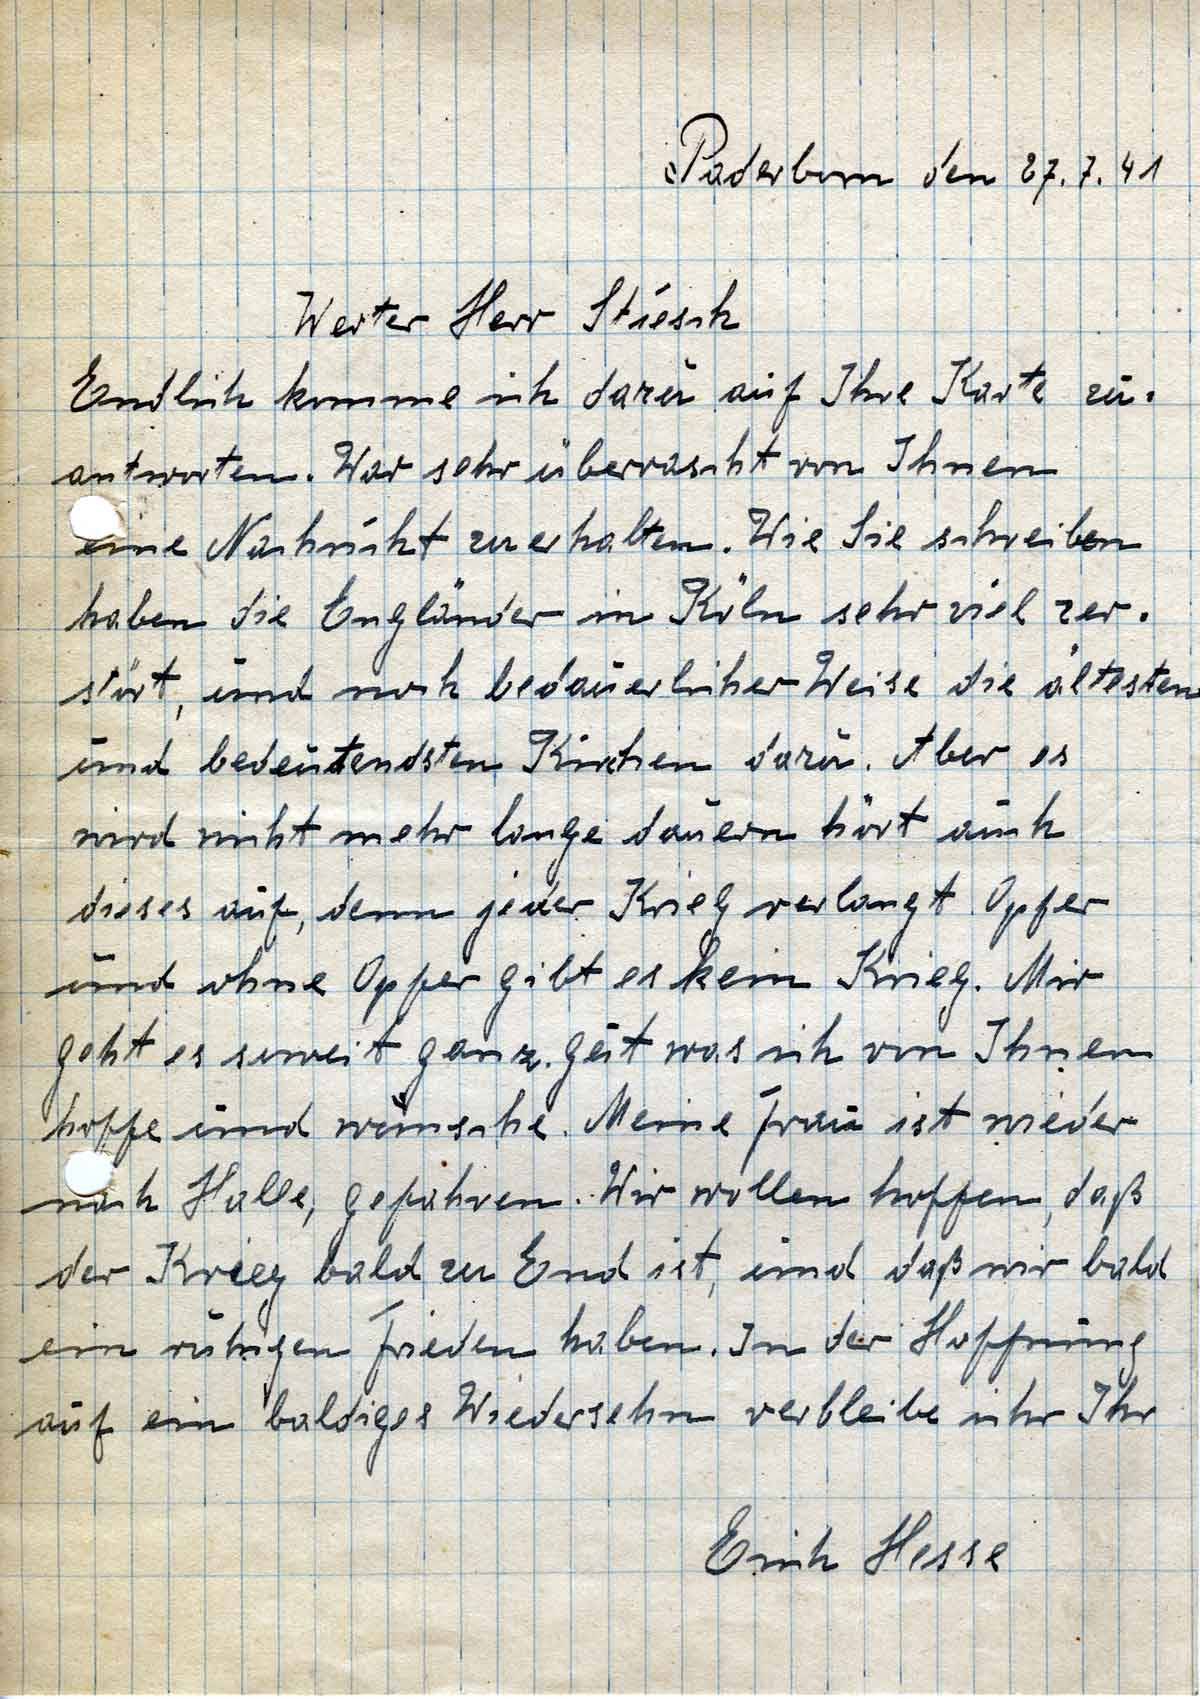 Paderborn den 27.7.41
Werter Herr Stiesch
Endlich komme ich dazu auf Ihre Karte zu.
antworten. War sehr überrascht von Ihnen
eine Nachricht zu erhalten. Wie Sie schreiben
haben die Engländer in Köln sehr viel zer.
stört, und noch bedauerlicher Weise die ältesten
und bedeutendsten Kirchen dazu. Aber es
wird nicht mehr lange dauern hört auch
dieses auf, denn jeder Krieg verlangt Opfer
und ohne Opfer gibt es kein Krieg. Mir
geht es soweit ganz gut was ich von Ihnen
hoffe und wünsche. Meine Frau ist wieder
nach Halle, gefahren. Wir wollen hoffen, daß
der Krieg bald zu End ist, und daß wir bald
ein ruhigen Frieden haben. In der Hoffnung
auf ein baldiges Wiedersehn verbleibe ihr Ihr
Erich Hesse